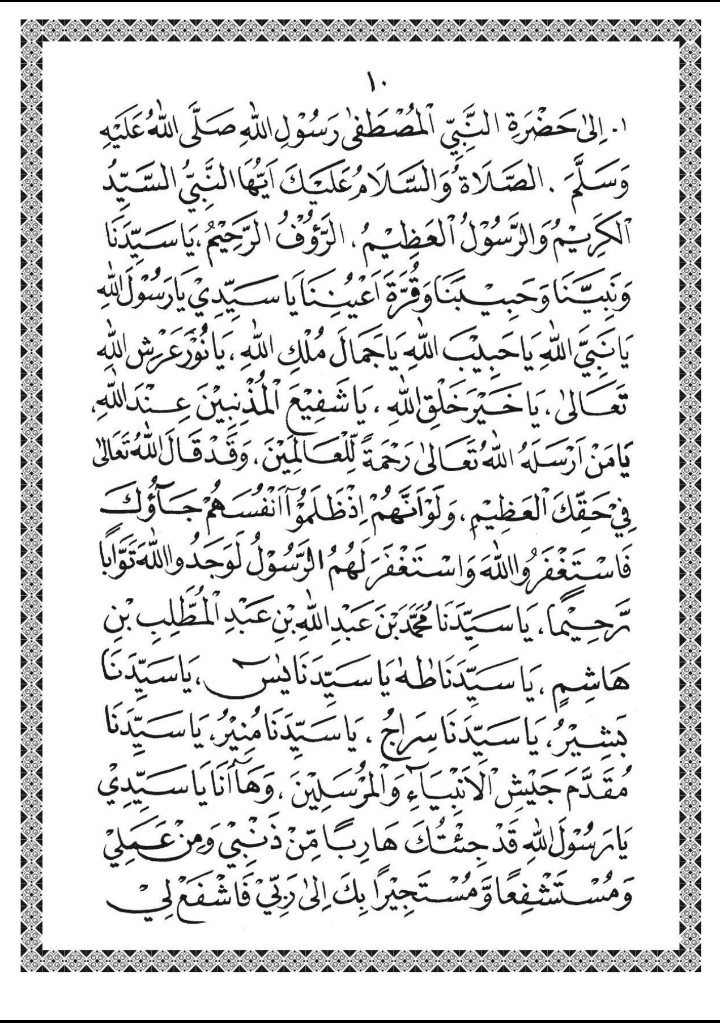 ١٠
١. اِلىٰ حَضْرَةِ النَّبِيِّ الْمُصْطَفىٰ رَسُوْلِ اللّٰهِ صَلَّى اللّٰهُ عَلَيْهِ
وَسَلَّمَ . الصَّلَاةُ وَالسَّلَامُ عَلَيْكَ اَيُّهَا النَّبِيُّ السَّيِّدُ
الْكَرِيْمُ وَالرَّسُوْلُ الْعَظِيْمُ . الرَّؤُفُ الرَّحِيْمُ ، يَا سَيِّدَنَا
وَنَبِيَّنَا وَحَبِيْبَنَا وَقُرَّةَ اَعْيُنِنَا يَا سَيِّدِيْ يَا رَسُوْلَ اللّٰهِ
يَا نَبِيَّ اللّٰهِ يَا حَبِيْبَ اللّٰهِ يَا جَمَالَ مُلْكِ اللّٰهِ ، يَا نُوْرَ عَرْشِ اللّٰهِ
تَعَالىٰ ، يَا خَيْرَ خَلْقِ اللّٰهِ ، يَا شَفِيْعَ الْمُذْنِبِيْنَ عِنْدَ اللّٰهِ،
يَا مَنْ اَرْسَلَهُ اللّٰهُ تَعَالىٰ رَحْمَةً لِّلْعَالَمِيْنَ ، وَقَدْ قَالَ اللّٰهُ تَعَالىٰ
فِيْ حَقِّكَ الْعَظِيْمِ ، وَلَوْ اَنَّهُمْ اِذْ ظَلَمُوْٓا اَنْفُسَهُمْ جَآؤُكَ
فَاسْتَغْفَرُوا اللّٰهَ وَاسْتَغْفَرَ لَهُمُ الرَّسُوْلُ لَوَجَدُوا اللّٰهَ تَوَّابًا
رَّحِيْمًا ، يَا سَيِّدَنَا مُحَمَّدَ بْنَ عَبْدِ اللّٰهِ بْنِ عَبْدِ الْمُطَّلِبِ بْنِ
هَاشِمٍ ، يَا سَيِّدَنَا طٰهٰ يَا سَيِّدَنَا يٰسٓ ، يَا سَيِّدَنَا
بَشِيْرُ ، يَا سَيِّدَنَا سِرَاجُ ، يَا سَيِّدَنَا مُنِيْرُ ، يَا سَيِّدَنَا
مُقَدَّمَ جَيْشِ الْاَنْبِيَآءِ وَالْمُرْسَلِيْنَ ، وَهَآ اَنَا يَا سَيِّدِيْ
يَا رَسُوْلَ اللّٰهِ قَدْ جِئْتُكَ هَارِبًا مِّنْ ذَنْبِيْ وَمِنْ عَمَلِيْ
وَمُسْتَشْفِعًا وَّمُسْتَجِيْرًا بِكَ اِلىٰ رَبِّيْ فَاشْفَعْ لِيْ